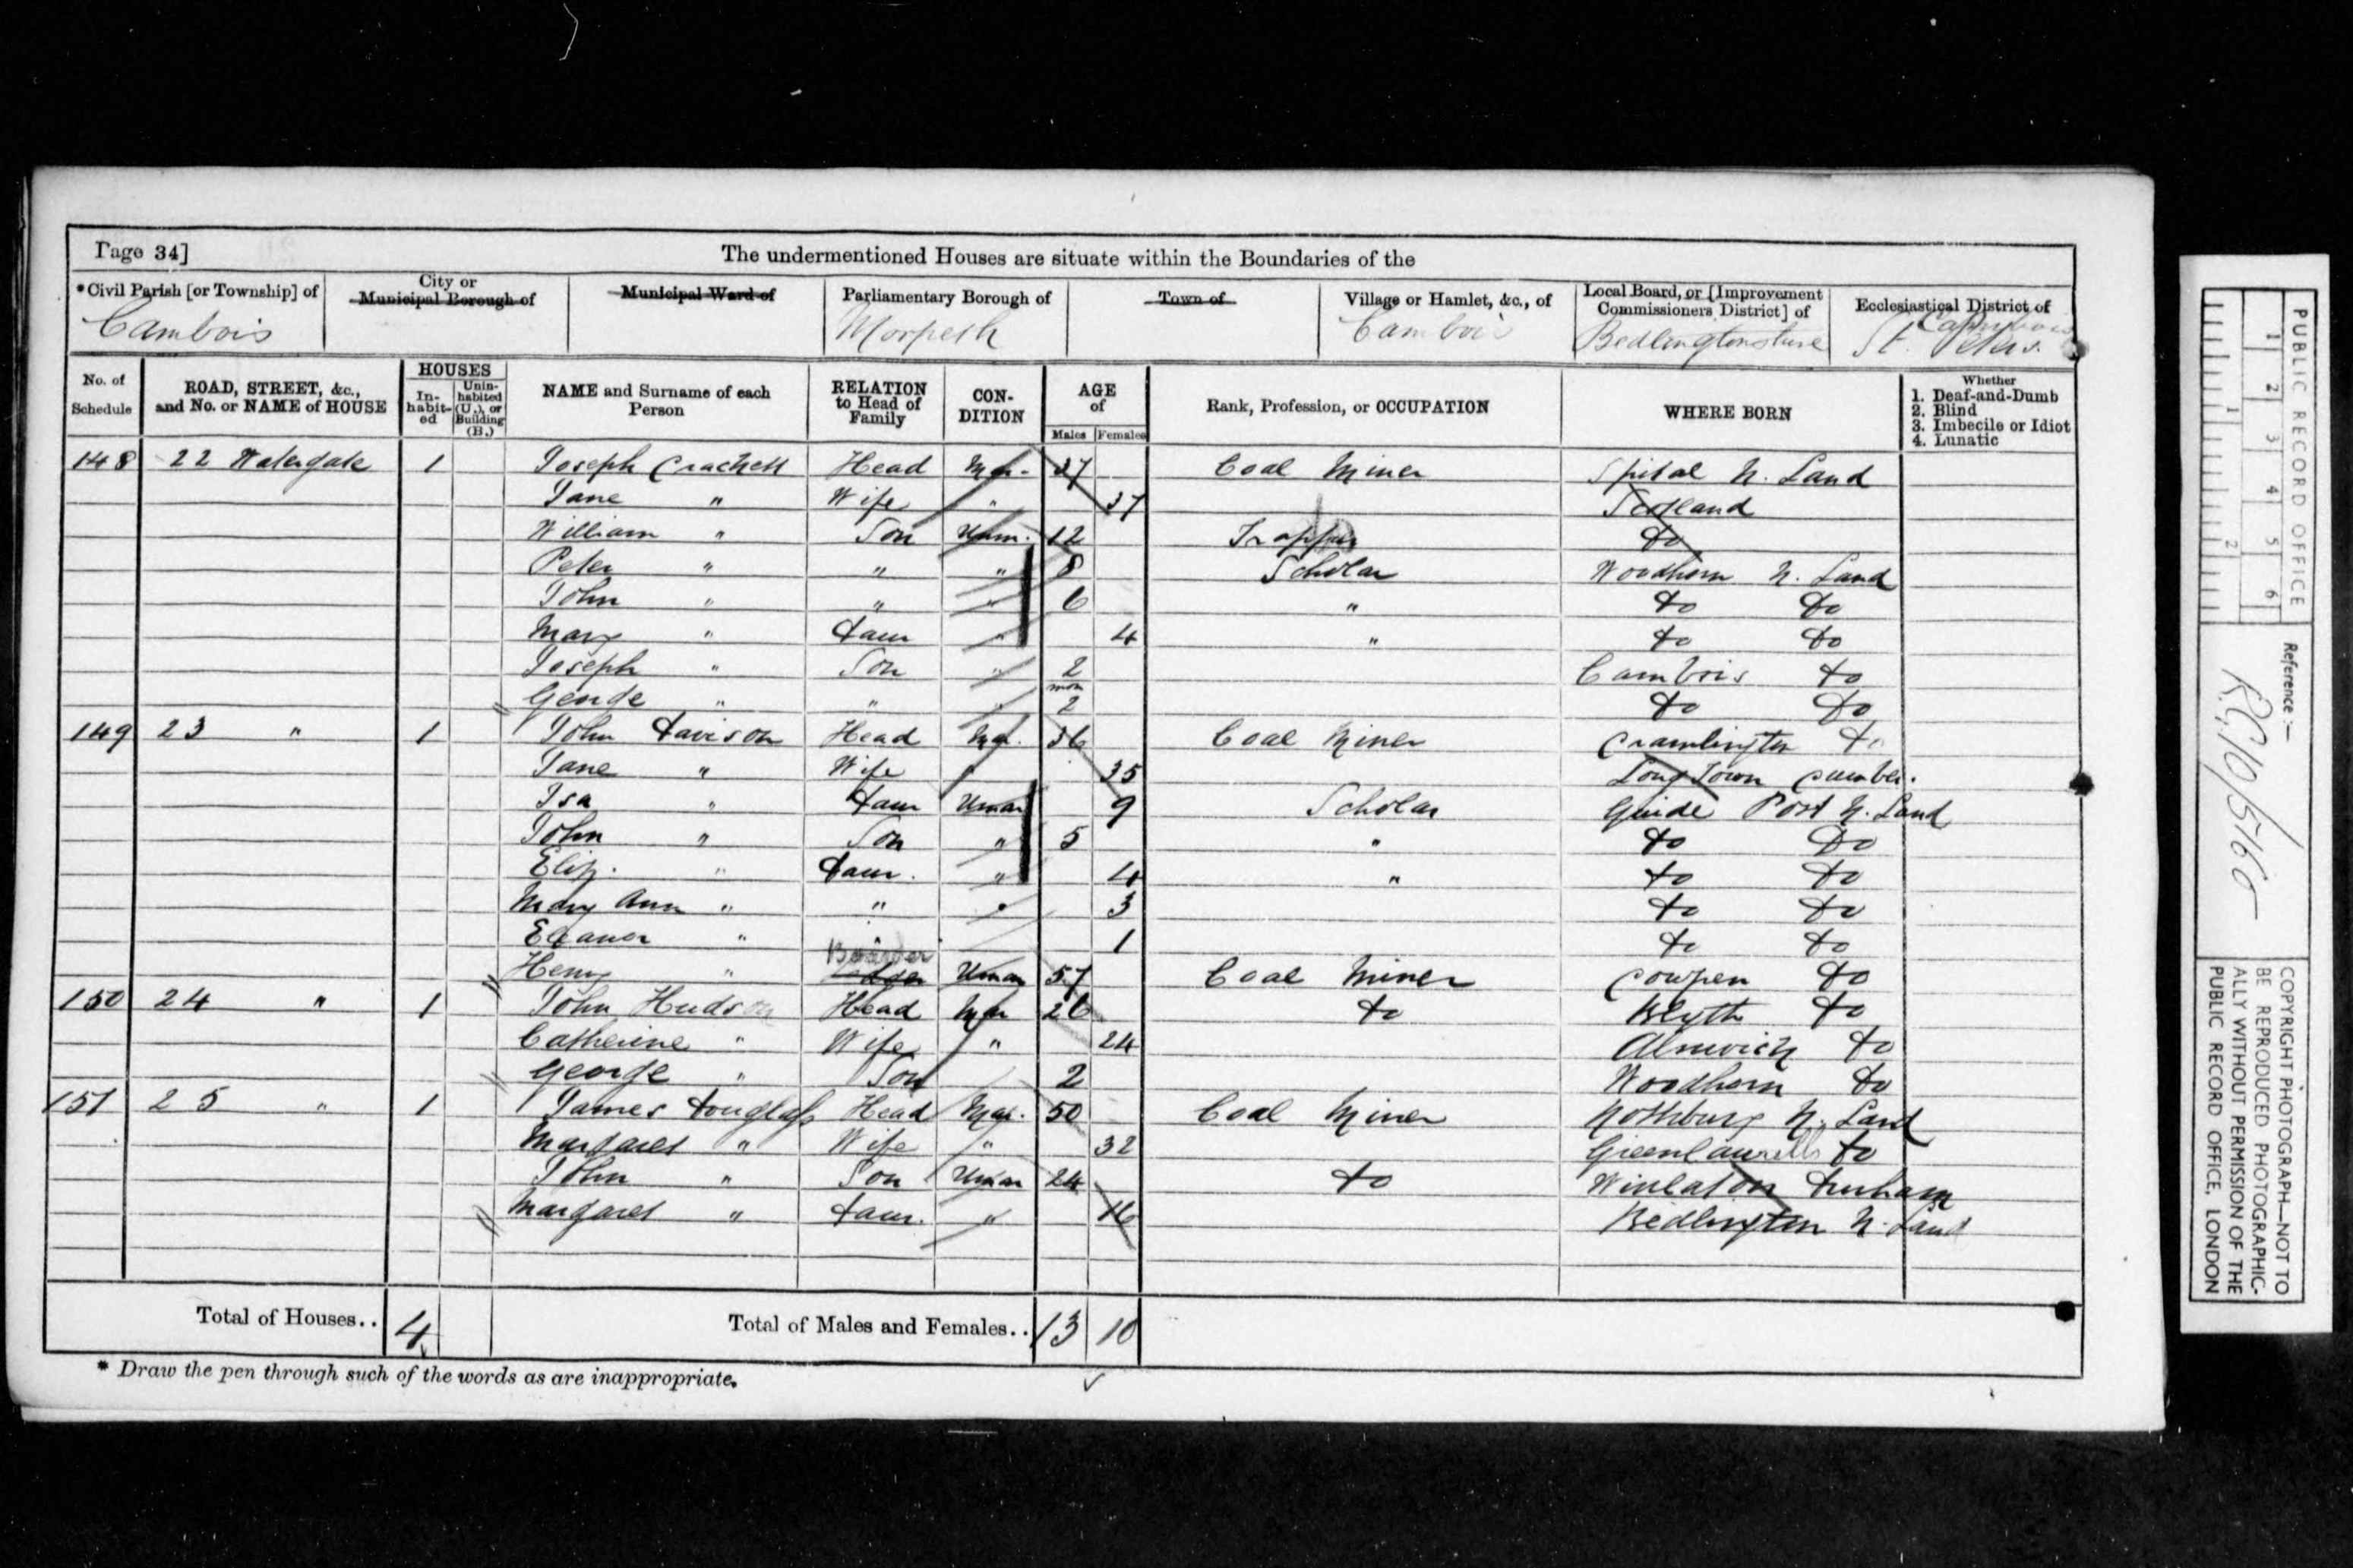 Page 34]
The undermentioned Houses are situate within the Boundaries of the
*Civil Parish [or Township] of
City or Municipal Borough of
Municipal Ward of
Parliamentary Borough of
Town of
Village or Hamlet, &c., of
Local Board, or [Improvement Commissioners District] of
Ecclesiastical District of
Cambois Morpeth Cambois Bedlingtonshire St. Peters. Cambois
No. of Schedule
ROAD, STREET, &c., and No. or NAME of HOUSE
HOUSES
In-habit-ed
Unin-habited (U.), or Building (B.)
NAME and Surname of each Person
RELATION to Head of Family
CON-DITION
AGE of
Males Females
Rank, Profession, or OCCUPATION
WHERE BORN
Whether
1. Deaf-and-Dumb
2. Blind
3. Imbecile or Idiot
4. Lunatic
148 22 Watergate 1 Joseph Crachett Head Mar. 37 Coal Miner Spital N. Land
Jane " Wife " 37 Scotland
William " Son Unm. 12 Trapper Do
Peter " " " 8 Scholar Woodhorn N. Land
John " " " 6 " Do Do
Mary " Daur " 4 " Do Do
Joseph " Son " 2 Cambois Do
George " " " mon 2 Do Do
149 23 " 1 John Davison Head Mar. 36 Coal Miner Cramlington Do
Jane " Wife " 35 Long Town Cumber.
Isa " Daur Unmar 9 Scholar Guide Post N. Land
John " Son " 5 " Do Do
Eliz. " Daur. " 4 " Do Do
Mary Ann " " " 3 Do Do
Eleanor " " 1 Do Do
Henry " Boarder Unmar 57 Coal Miner Cowpen Do
150 24 " 1 John Hudson Head Mar 26 Do Blyth Do
Catherine " Wife " 24 Alnwick Do
George " Son 2 Woodhorn Do
151 25 " 1 James Douglass Head Mar. 50 Coal Miner Rothbury N. Land
Margaret " Wife " 32 Do
John " Son Unmar 24 Do Winlaton Durham
Margaret " Daur. " 16 Bedlington N. Land
Total of Houses.. 4 Total of Males and Females.. 13 10
* Draw the pen through such of the words as are inappropriate.
PUBLIC RECORD OFFICE
1 2 3 4 5 6
1 2
Reference:—
R.G. 10/5160
COPYRIGHT PHOTOGRAPH—NOT TO
BE REPRODUCED PHOTOGRAPHIC-
ALLY WITHOUT PERMISSION OF THE
PUBLIC RECORD OFFICE, LONDON